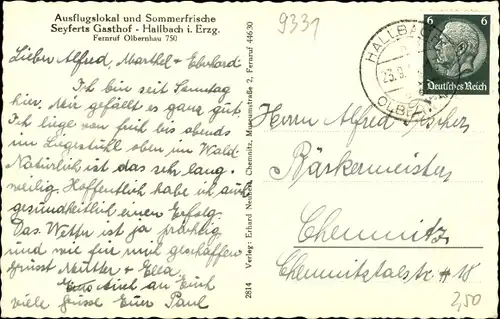 Ausflugslokal und Sommerfrische
Seyferts Gasthof - Hallbach i. Erzg.
Fernruf Olbernhau 750
9331
Lieber Alfred, Marthel & Eberhard
Ich bin seit Samstag
hier. Mir gefällt es ganz gut.
Ich liege von früh bis abends
im Liegestuhl oben im Wald
Natürlich ist das sehr lang-
weilig. Hoffentlich habe ich auch
gesundheitlich einen Erfolg.
Das Wetter ist ja prächtig
und wie für mich geschaffen
Grüsst Mutter & Ella.
an Euch
viele Grüsse Euer Paul
2814 Verlag: Erhard Chemnitz, Museumstraße 2, Fernruf 44630
HALLBACH
23.9.
6 6
Deutsches Reich
Herrn Alfred
Bäckermeister
Chemnitz
Chemnitztalstr # 18
2,50